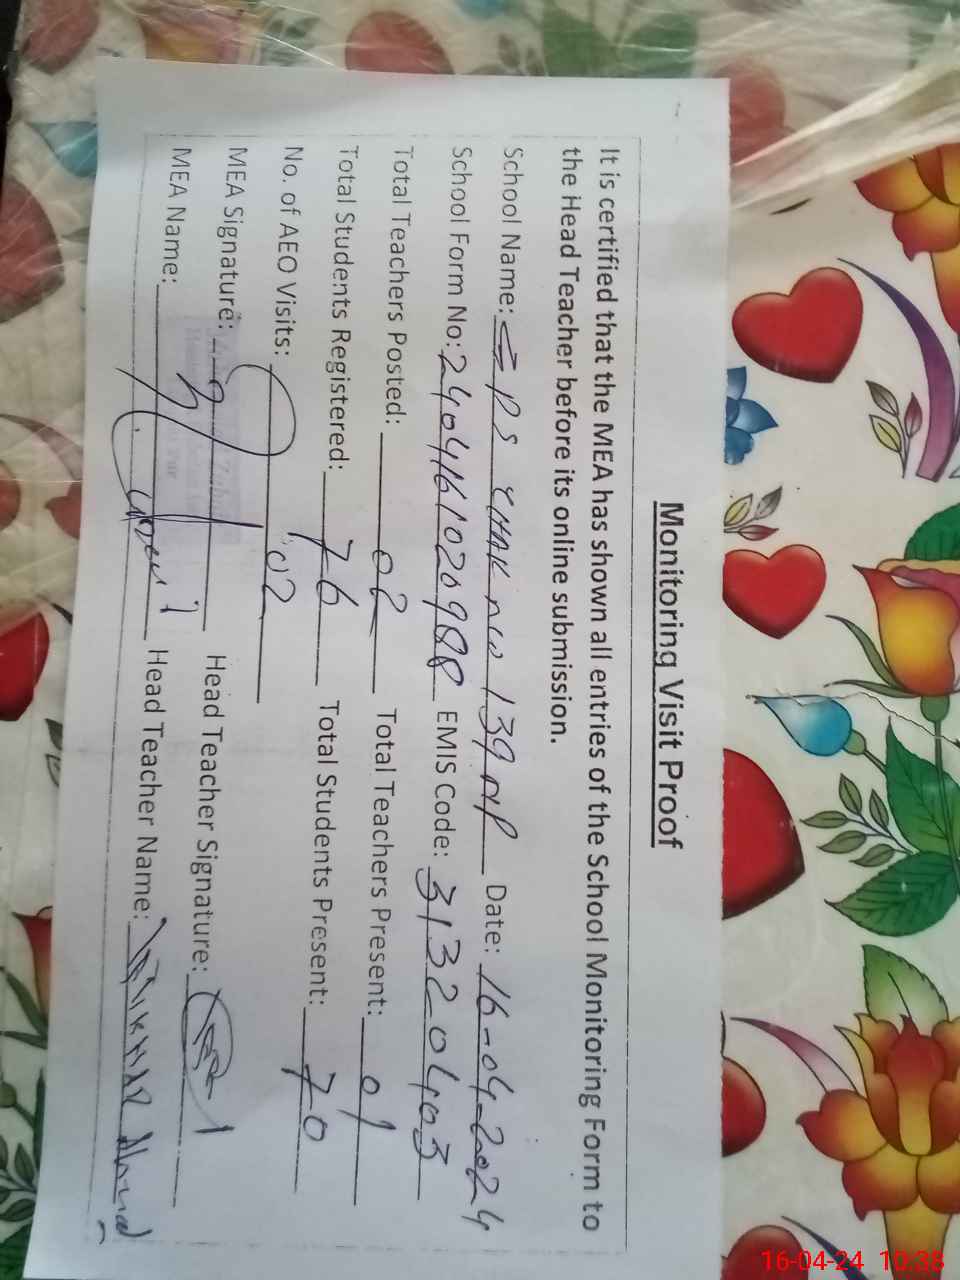 Monitoring Visit Proof
It is certified that the MEA has shown all entries of the School Monitoring Form to
the Head Teacher before its online submission.
School Name: GPS CHAK NO 139 NP Date: 16-04-2024
School Form No: 2404161020988 EMIS Code: 31320403
Total Teachers Posted: 02 Total Teachers Present: 01
Total Students Registered: 76 Total Students Present: 70
No. of AEO Visits: 02
MEA Signature: Head Teacher Signature:
MEA Name: Head Teacher Name:
16-04-24 10:38